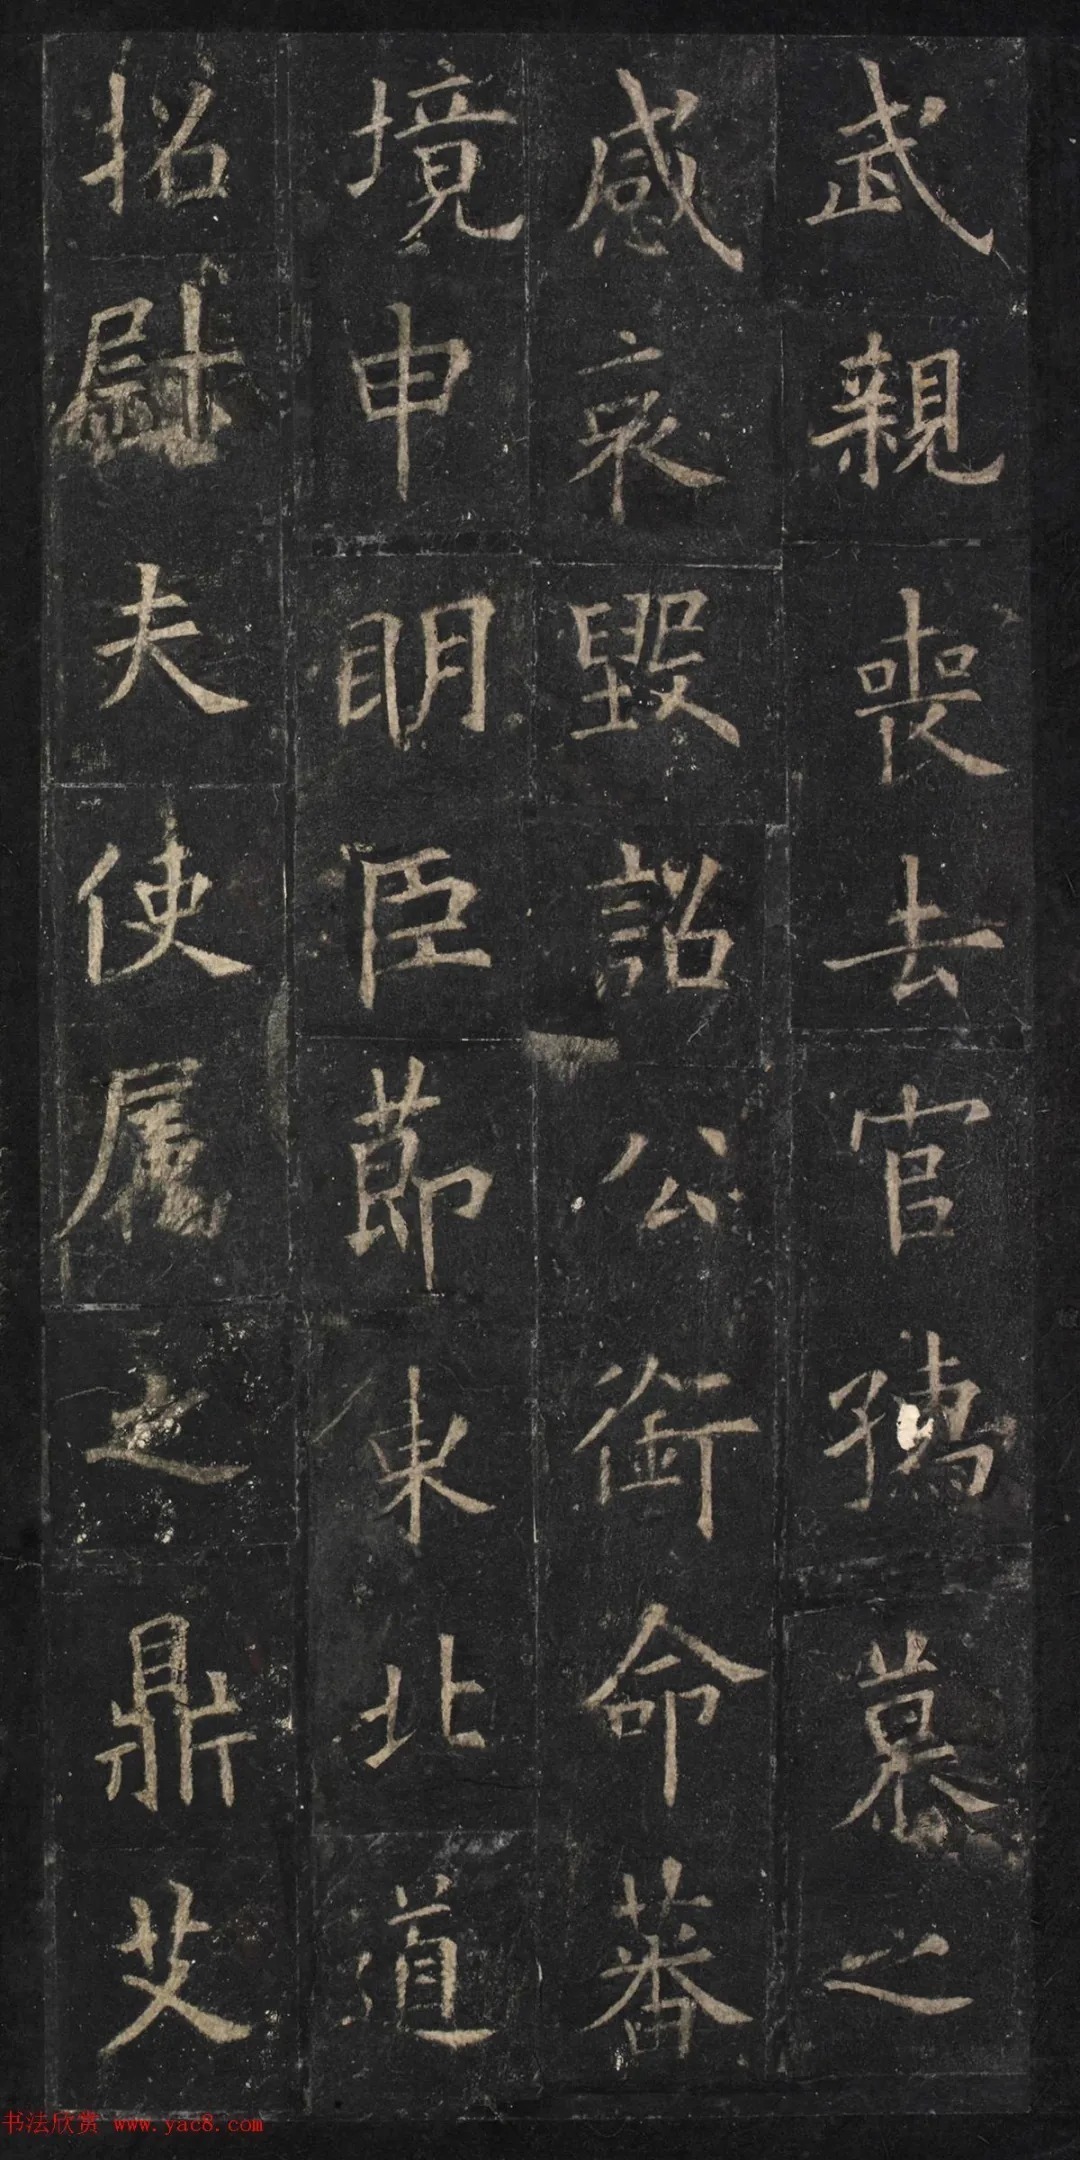 武親喪去官孺慕之
感哀毀詔公銜命蕃
境申明臣節東北道
招慰大使屬之鼎艾
书法欣赏 www.yac8.com